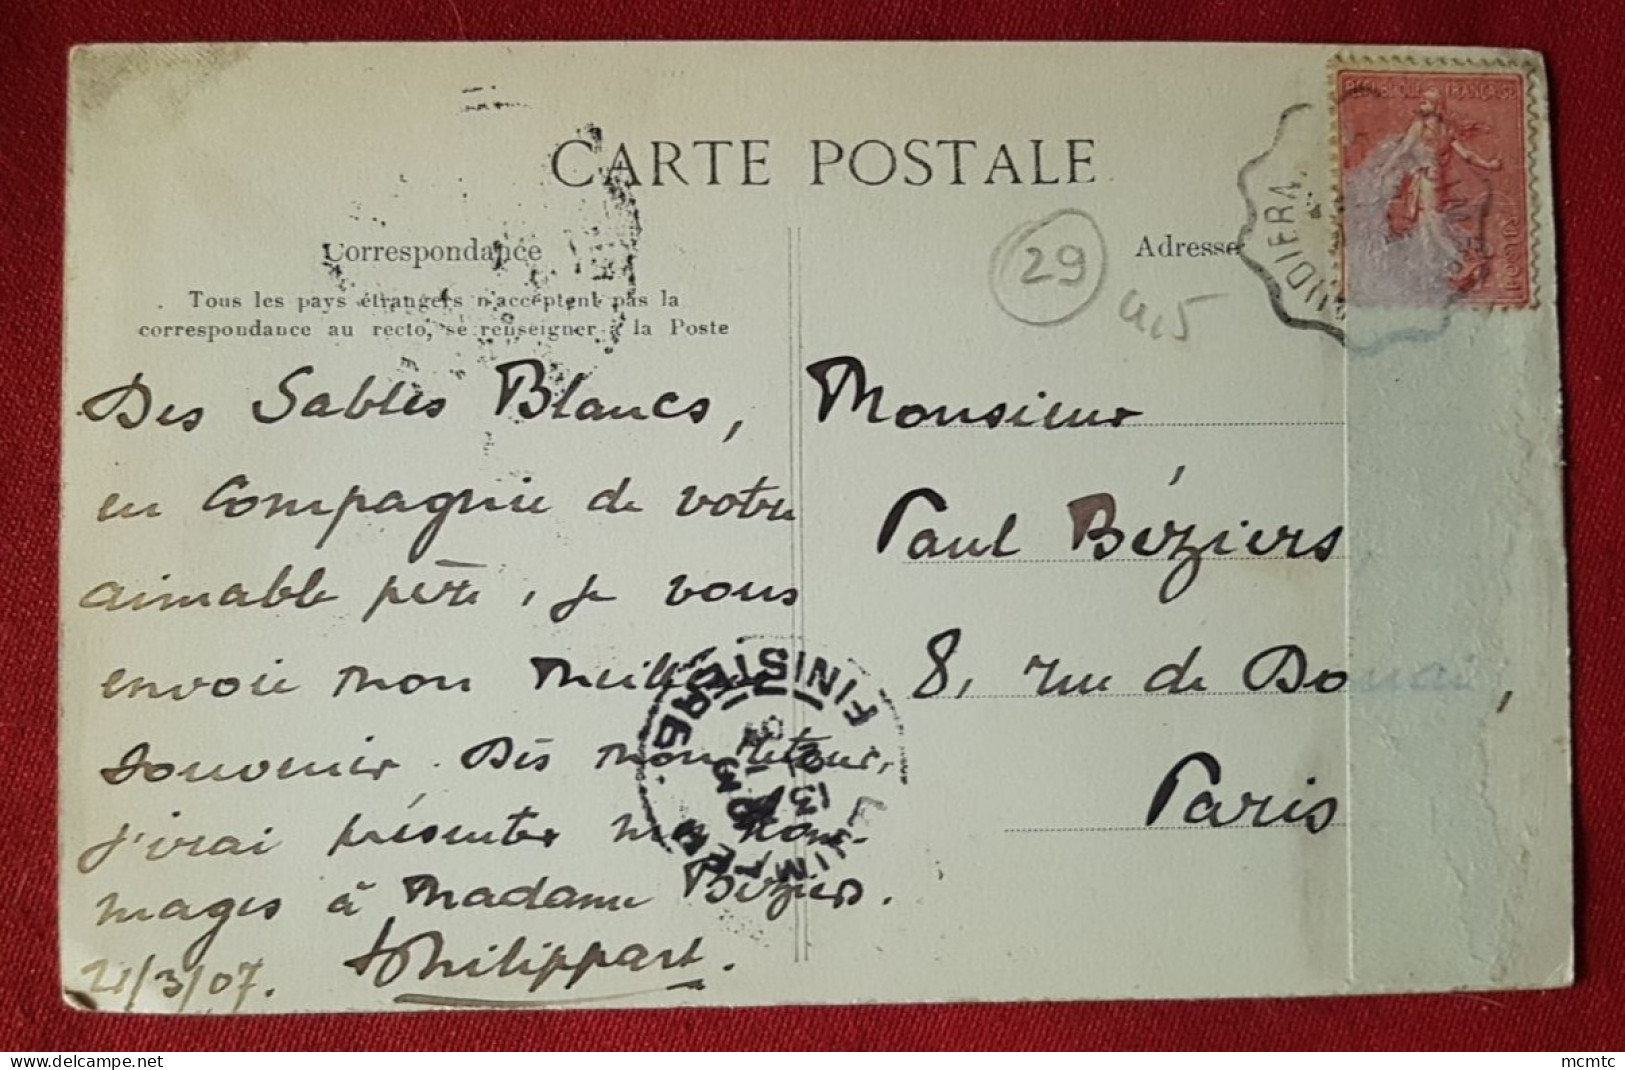 CARTE POSTALE
Correspondance
Tous les pays étrangers n'acceptent pas la
correspondance au recto, se renseigner à la Poste
Des Sables Blancs,
en Compagnie de votre
aimable père, je vous
envoie mon meilleur
souvenir. Dès mon retour,
j'irai présenter mes hom-
mages à Madame Béziers.
21/3/07. Philippart.
Adresse
29
4,5
Monsieur
Paul Béziers
8, rue de Douai,
Paris
REPUBLIQUE FRANÇAISE
FINISTERE
mcmtc